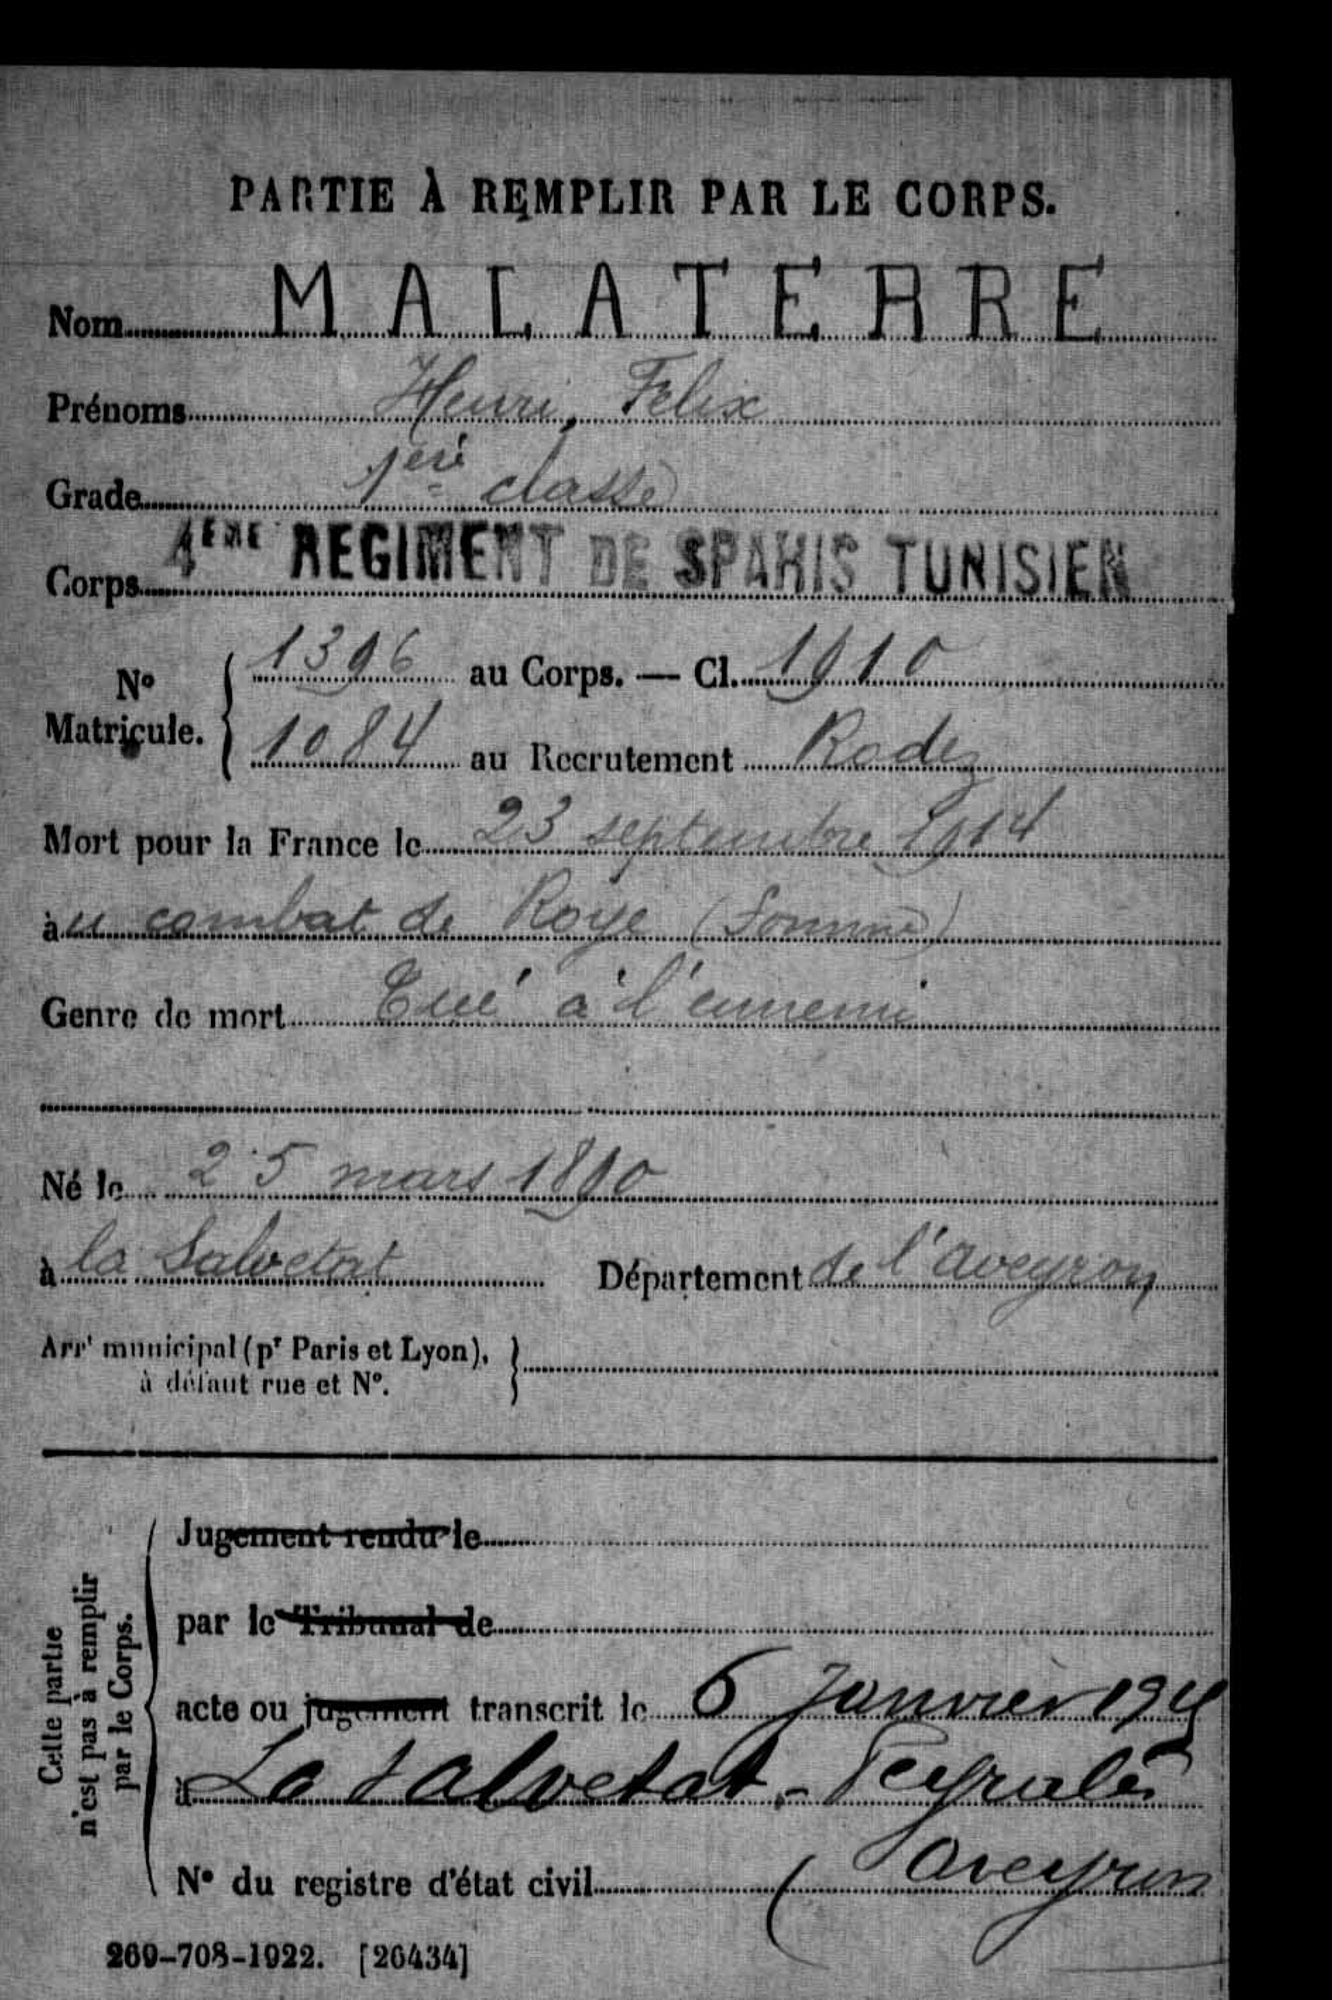 PARTIE À REMPLIR PAR LE CORPS.
Nom MALATERRE
Prénoms Henri, Felix
Grade 1ère classe
Corps 4EME REGIMENT DE SPAHIS TUNISIEN
No Matricule. 1396 au Corps. — Cl. 1910
1084 au Recrutement Rodez
Mort pour la France le 23 septembre 1914
àu combat de Roye (Somme)
Genre de mort Tué à l'ennemi
Né le 25 mars 1890
à la Salvetat Département de l'Aveyron
Arrt municipal (pr Paris et Lyon),
à défaut rue et No.
Cette partie
n'est pas à remplir
par le Corps.
Jugement rendu le
par le Tribunal de
acte ou jugement transcrit le 6 Janvier
à La Salvetat-Peyralès
No du registre d'état civil (Aveyron
269-708-1922. [26434]